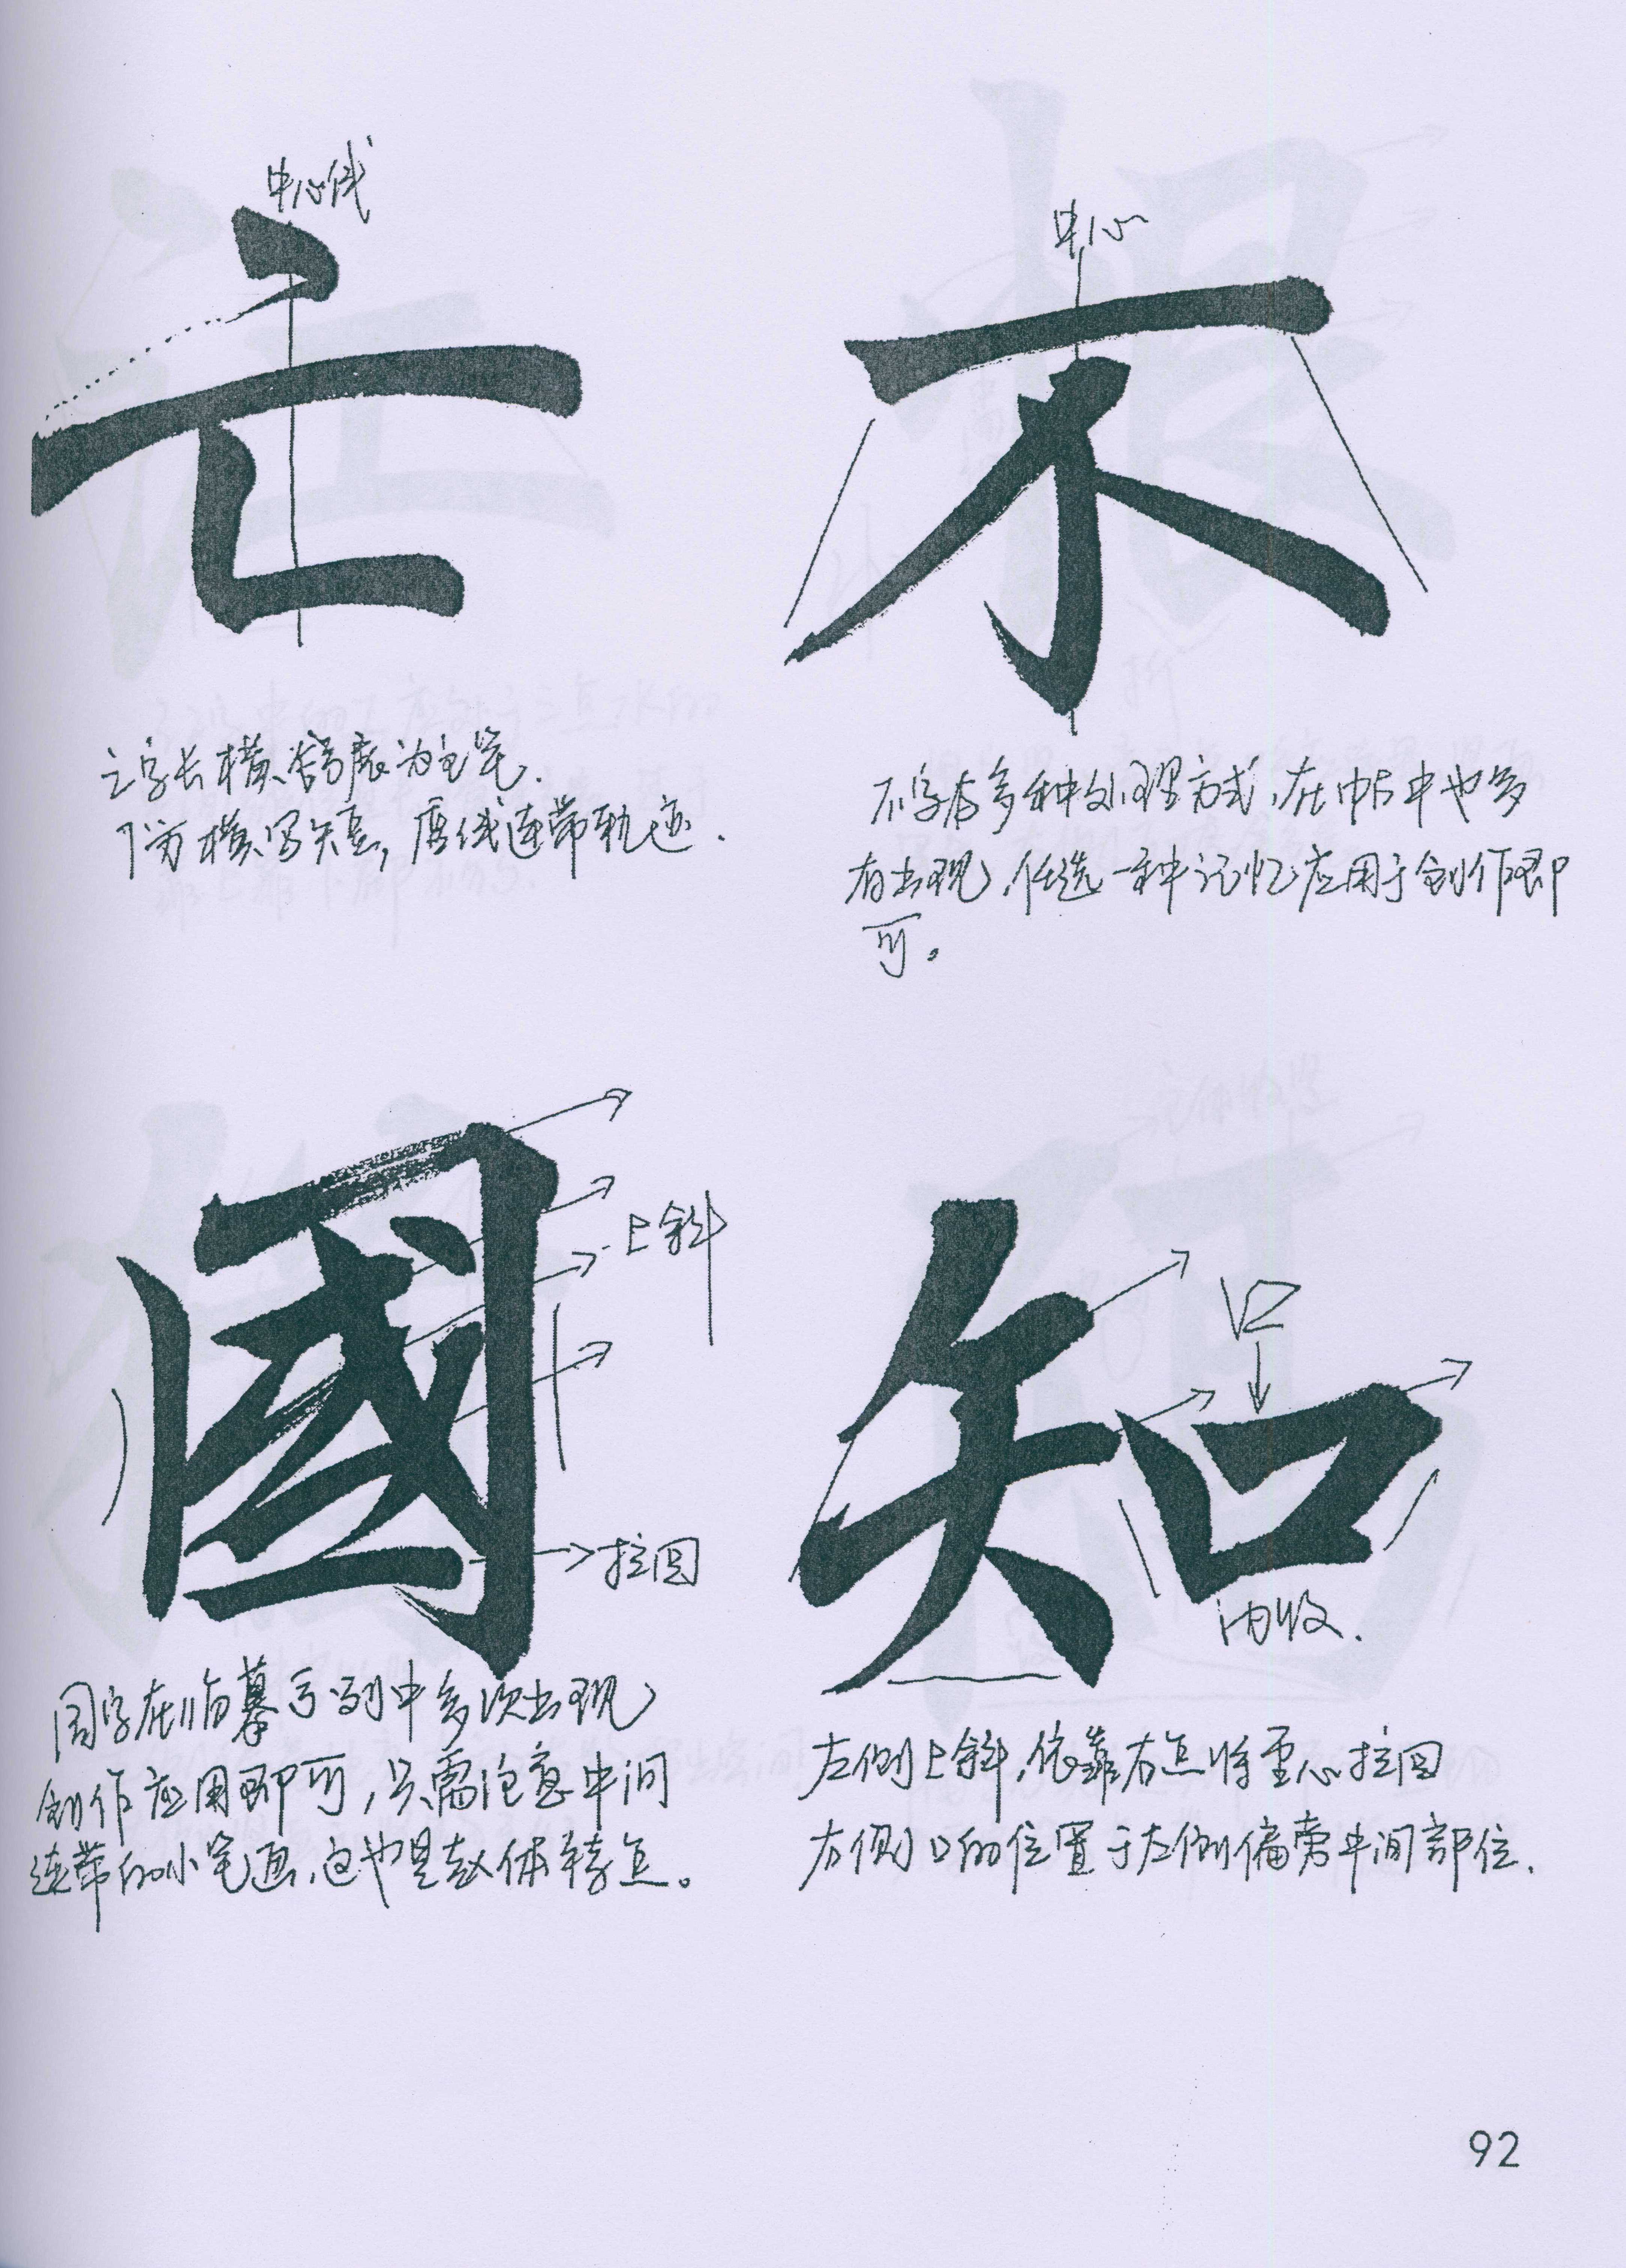 中心线
亡
亡字长横舒展为主笔.
下方横写短,虚线连带轨迹.
中心
不
不字有多种处理方式,在帖中也多
有出现,任选一种记忆应用于创作即
可。
國
上斜
拉回
国字在临摹系列中多次出现
创作应用即可,只需注意中间
连带的小笔画,这也是赵体特点。
知
口
内收.
左侧上斜,依靠右点将重心拉回
右侧口的位置于左侧偏旁中间部位.
92